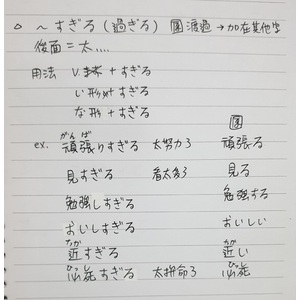 。～すぎる(過ぎる) 渡過→加在其他字
後面=太....
用法 V.ます+すぎる
い形+すぎる
な形+すぎる
ex. 頑張りすぎる 太努力了 頑張る
がんば
見すぎる 看太多了 見る
勉強しすぎる 勉強する
おいしすぎる おいしい
近すぎる 近い
ちか ちか
必死すぎる 太拼命了 必死
ひっし ひっし